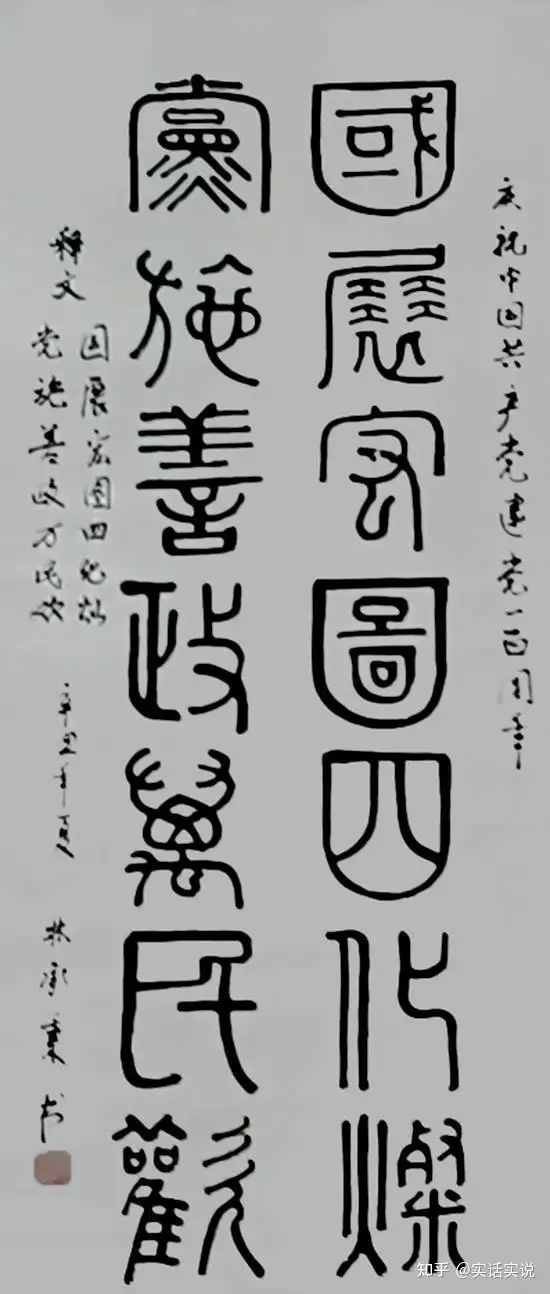 庆祝中国共产党建党一百周年
國展宏圖四化燦
黨施善政萬民歡
释文
国展宏图四化灿
党施善政万民欢
辛丑年夏
林承书
知乎 @实话实说